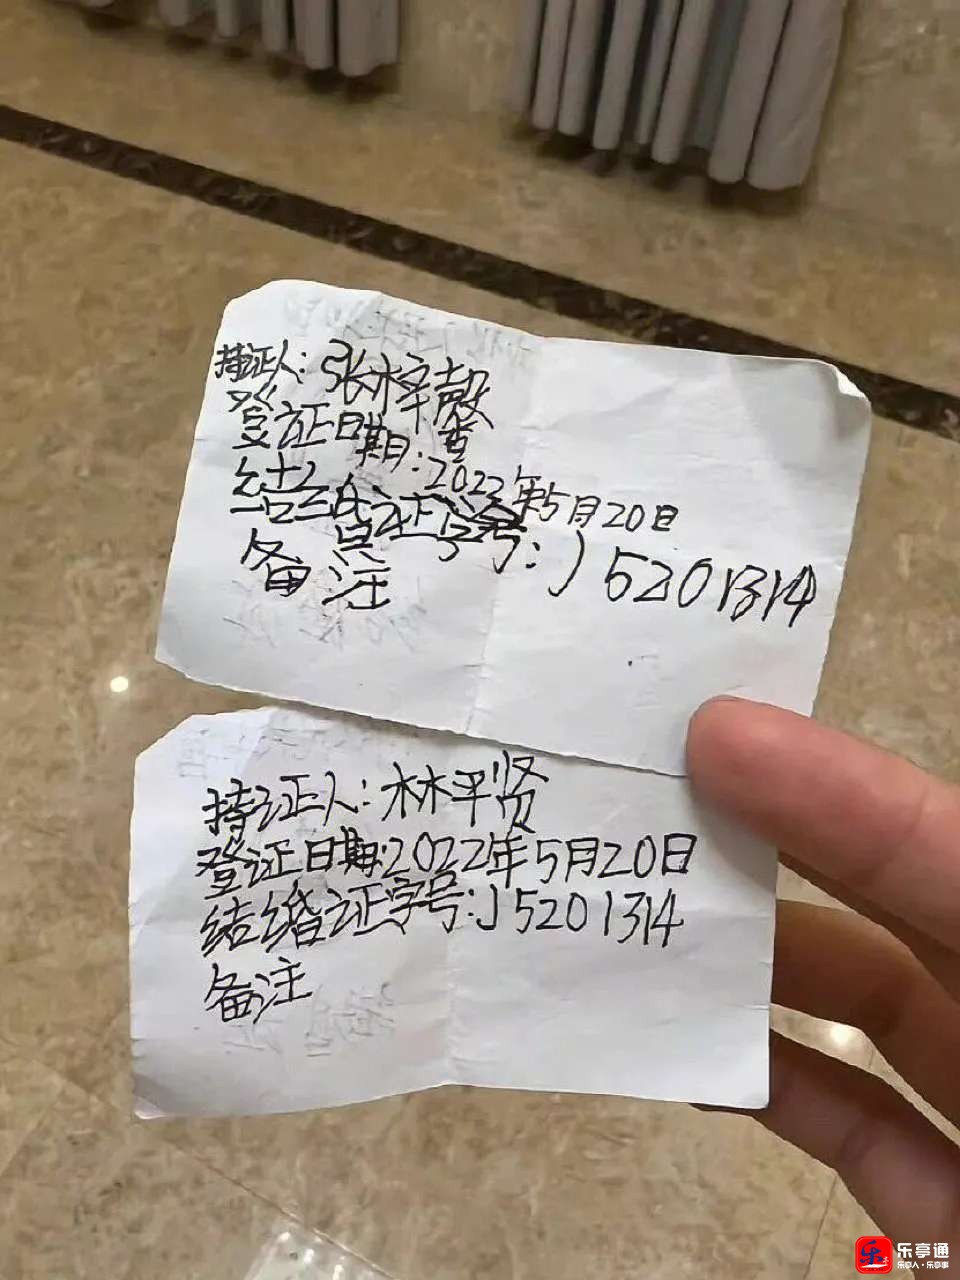 持证人:张梓
登证日期:2022年5月20日
结婚证字号:J5201314
备注
持证人:林平贤
登证日期:2022年5月20日
结婚证字号:J5201314
备注
乐亭通
乐亭人·乐亭事